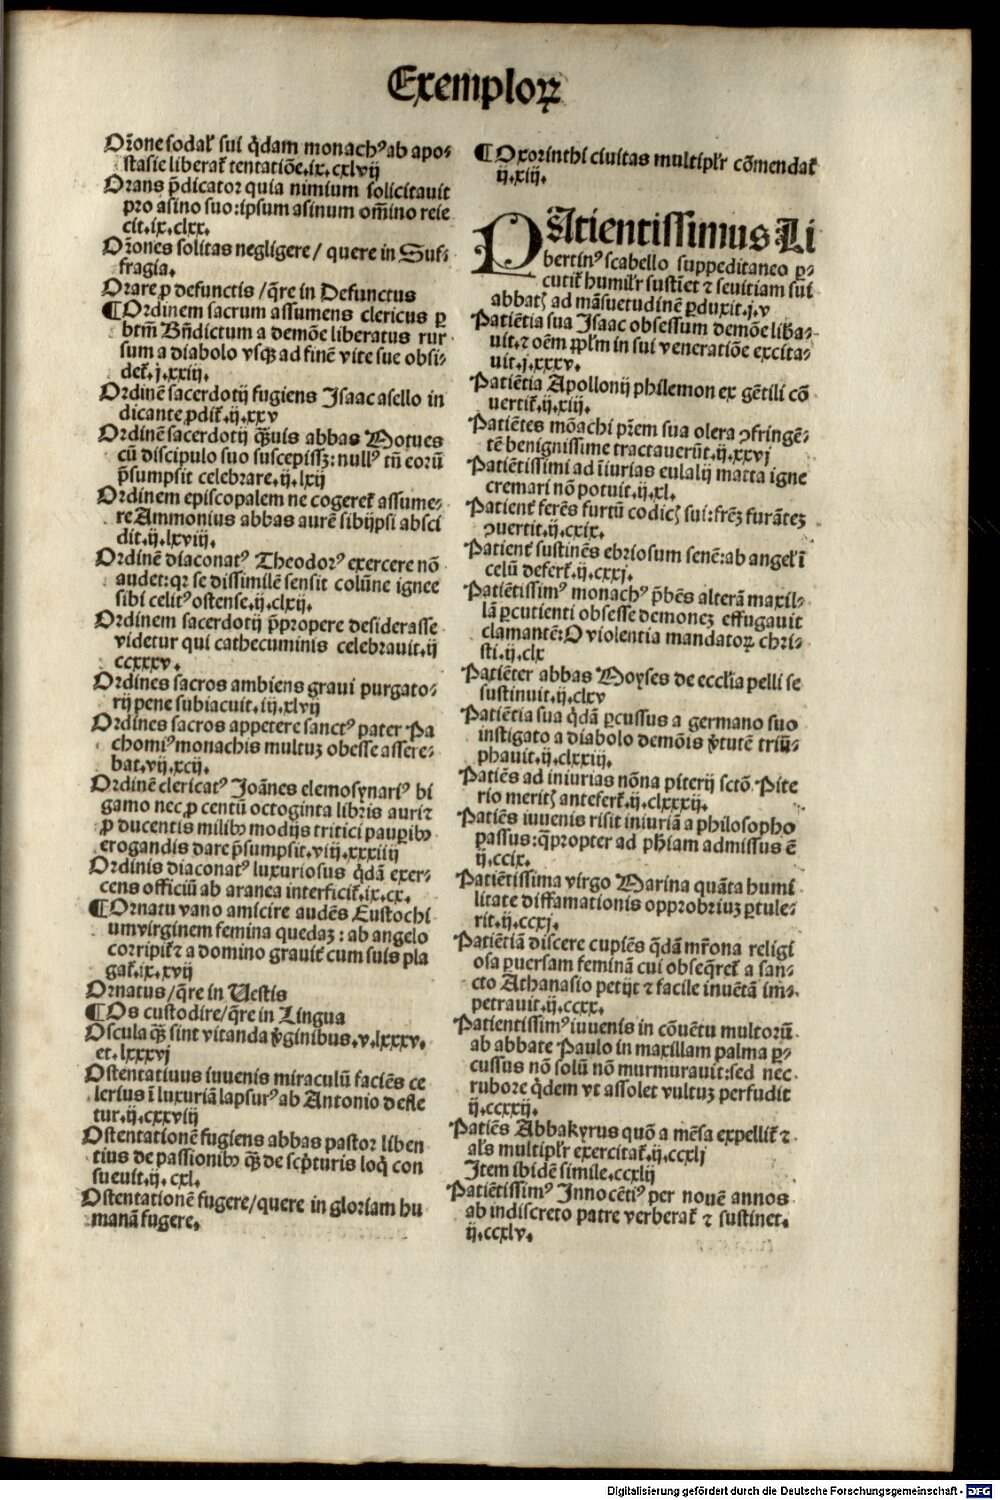 Exemploꝝ
Or̄one sodaľ sui q̇dam monachꝰ ab apo⸗
stasie liberať tentatiōe.ix.cxlvij
Orans p̄dicator quia nimium solicitauit
pro asino suo:ipsum asinum om̄ino reie
cit.ix.clxx.
Or̄ones solitas negligere / quere in Suf⸗
fragia.
Orare ꝓ defunctis /q̄re in Defunctus
¶Ordinem sacrum assumens clericus ꝑ
btm̄ Bn̄dictum a demōe liberatus rur
sum a diabolo vsqꝫ ad finē vite sue obsi⸗
deť.j.xxiij.
Ordinē sacerdotij fugiens Isaac asello in
dicante ꝓdiť.ij.xxv
Ordinē sacerdotij qȝ̄uis abbas Motues
cū discipulo suo suscepissꝫ:nullꝰ tn̄ eorū
p̄sumpsit celebrare.ij.lxij
Ordinem episcopalem ne cogereť assume⸗
re Ammonius abbas aurē sibijpsi absci
dit.ij.lxviij.
Ordinē diaconatꝰ Theodorꝰ exercere nō
audet:qr se dissimilē sensit colūne ignee
sibi celitꝰ ostense.ij.clxij.
Ordinem sacerdotij p̄propere desiderasse
videtur qui cathecuminis celebrauit.ij
ccxxxv.
Ordines sacros ambiens graui purgato⸗
rij pene subiacuit.iij.xlvij
Ordines sacros appetere sanctꝰ pater Pa
chomiꝰ monachis multuꝫ obesse assere⸗
bat.vij.xcij.
Ordinē clericatꝰ Joānes elemosynariꝰ bi
gamo nec ꝓ centū octoginta libris auri ⁊
ꝓ ducentis milibꝫ modijs tritici pauꝑibꝫ
erogandis dare p̄sumpsit.viij.xxxiiij
Ordinis diaconatꝰ luxuriosus q̇dā exer⸗
cens officiū ab aranea interficiť.ix.cx.
¶Ornatu vano amicire audēs Eustochi
umvirginem femina quedaꝫ : ab angelo
corripiť ⁊ a domino grauiť cum suis pla
gať.ix.xvij
Ornatus/q̄re in Vestis
¶Os custodire/q̄re in Lingua
Oscula qȝ̄ sint vitanda v̇ginibus.v.lxxxv.
et.lxxxvj
Ostentatiuus iuuenis miraculū faciēs ce
lerius ī luxuriā lapsurꝰ ab Antonio defle
tur.ij.cxxviij
Ostentationē fugiens abbas pastor liben
tius de passionibꝫ qȝ̄ de scp̄turis loq̇ con
sueuit.ij. cxl.
Ostentationē fugere/quere in gloriam hu
manā fugere.
¶Oxorinthi ciuitas multipľr cōmendať
ij.xiij.
PAtientissimus Li
bertinꝰ scabello suppeditaneo ꝑ⸗
cutiť humiľr sustīet ⁊ seuitiam sui
abbatꝭ ad māsuetudinē ꝑduxit.j.v
Patiētia sua Isaac obsessum demōe liba⸗
uit.⁊ oēm ppľm in sui veneratiōe excita⸗
uit.j.xxxv.
Patiētia Apollonij philemon ex gētili cō
uertiť.ij.xiij.
Patiētes mōachi pr̄em sua olera ꝯfringē⸗
tē benignissime tractauerūt.ij.xxvj
Patiētissimi ad īiurias eulalij matta igne
cremari nō potuit.ij.xl.
Patienť ferēs furtū codicꝭ sui:frēꝫ furāteꝫ
ꝯuertit.ij.cxix.
Patienť sustinēs ebriosum senē:ab angeľ ī
celū deferť.ij.cxxj.
Patiētissimꝰ monachꝰ p̄bēs alterā maxil⸗
lā ꝑcutienti obsesse demoneꝫ effugauit
clamantē:O violentia mandatoꝝ chri⸗
sti.ij.clx
Patiēter abbas Moyses de eccľia pelli se
sustinuit.ij.clxv
Patiētia sua q̇dā ꝑcussus a germano suo
instigato a diabolo demōis v̇tutē triū⸗
phauit.ij.clxxiij.
Patiēs ad iniurias nōna piterij sctō Pite
rio meritꝭ anteferť.ij.clxxxij.
Patiēs iuuenis risit iniuriā a philosopho
passus:q̄propter ad ph̄iam admissus ē
ij.ccix.
Patiētissima virgo Marina quāta humi
litate diffamationis opprobriuꝫ ꝑtule⸗
rit.ij.ccxj.
Patiētiā discere cupiēs q̄dā mr̄ona religi
osa ꝑuersam feminā cui obseq̄reť a san⸗
cto Athanasio petijt ⁊ facile inuētā im⸗
petrauit.ij.ccxx.
Patientissimꝰ iuuenis in cōuētu multorū
ab abbate Paulo in maxillam palma ꝑ⸗
cussus nō solū nō murmurauit:sed nec
rubore q̇dem vt assolet vultuꝫ perfudit
ij.ccxxij.
Patiēs Abbakyrus quō a mēsa expelliť ⁊
aľs multipľr exercitať.ij.ccxlj
Item ibidē simile.ccxlij
Patiētissimꝰ Innocētiꝰ per nouē annos
ab indiscreto patre verberať ⁊ sustinet.
ij.ccxlv.
Digitalisierung gefördert durch die Deutsche Forschungsgemeinschaft - DFG